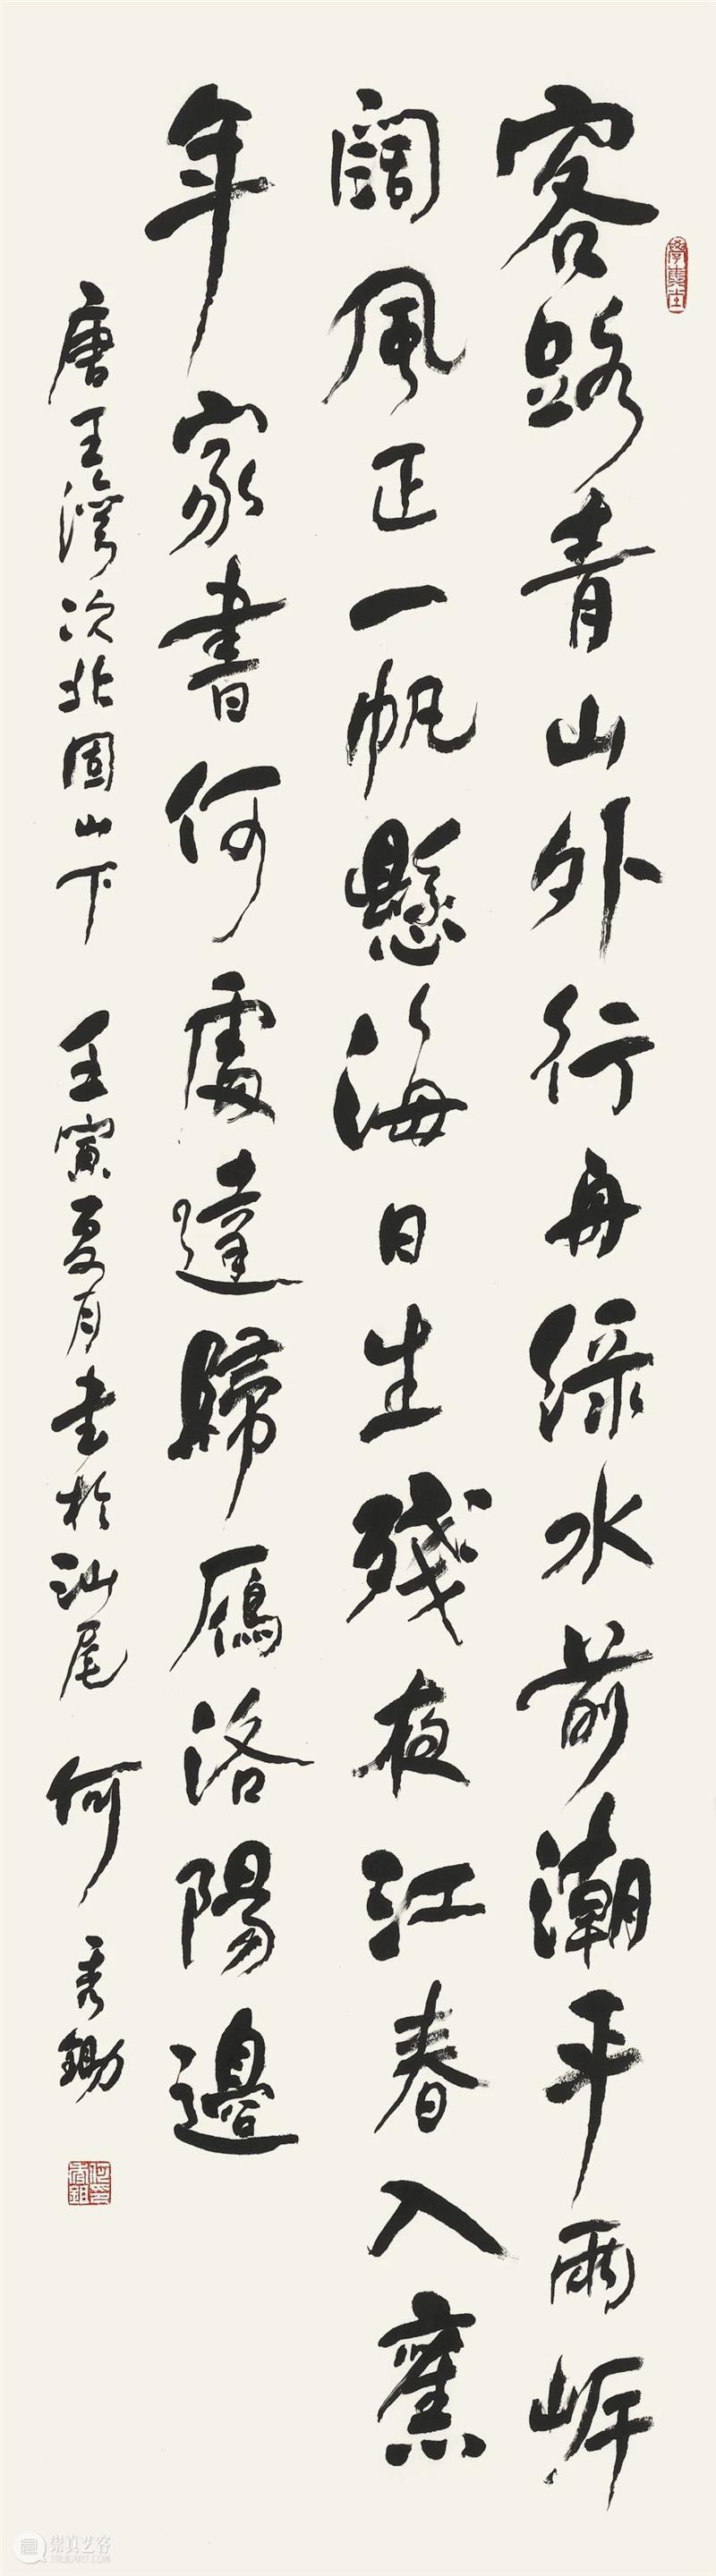 客路青山外行舟綠水前潮平兩岸
闊風正一帆懸海日生殘夜江春入舊
年家書何處達歸鴈洛陽邊
唐王灣次北固山下 壬寅夏月書於汕尾 何秀鋤
崇真艺客
TRUEART.COM